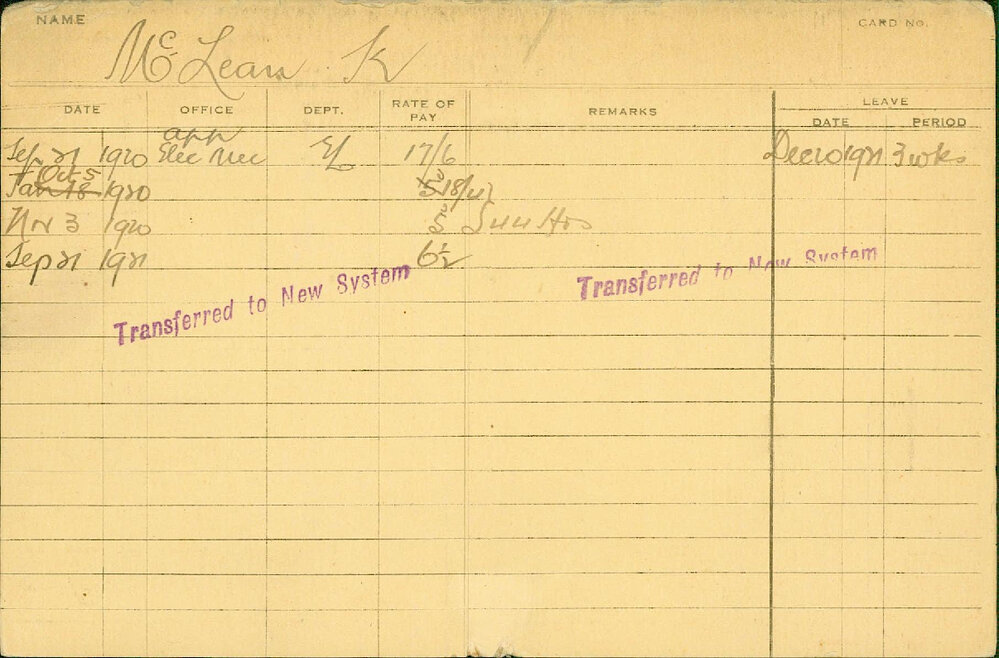 NAME
CARD NO.
McLean K
DATE OFFICE DEPT. RATE OF PAY REMARKS LEAVE
DATE PERIOD
app
Sep 21 1920 Elec Mec EL 17/6 Dec 20 1921 3 wks
Oct 5
Jan 18 1920 18/4
Nov 3 1920 5
Sep 21 1921 6½
Transferred to New System
Transferred to New System